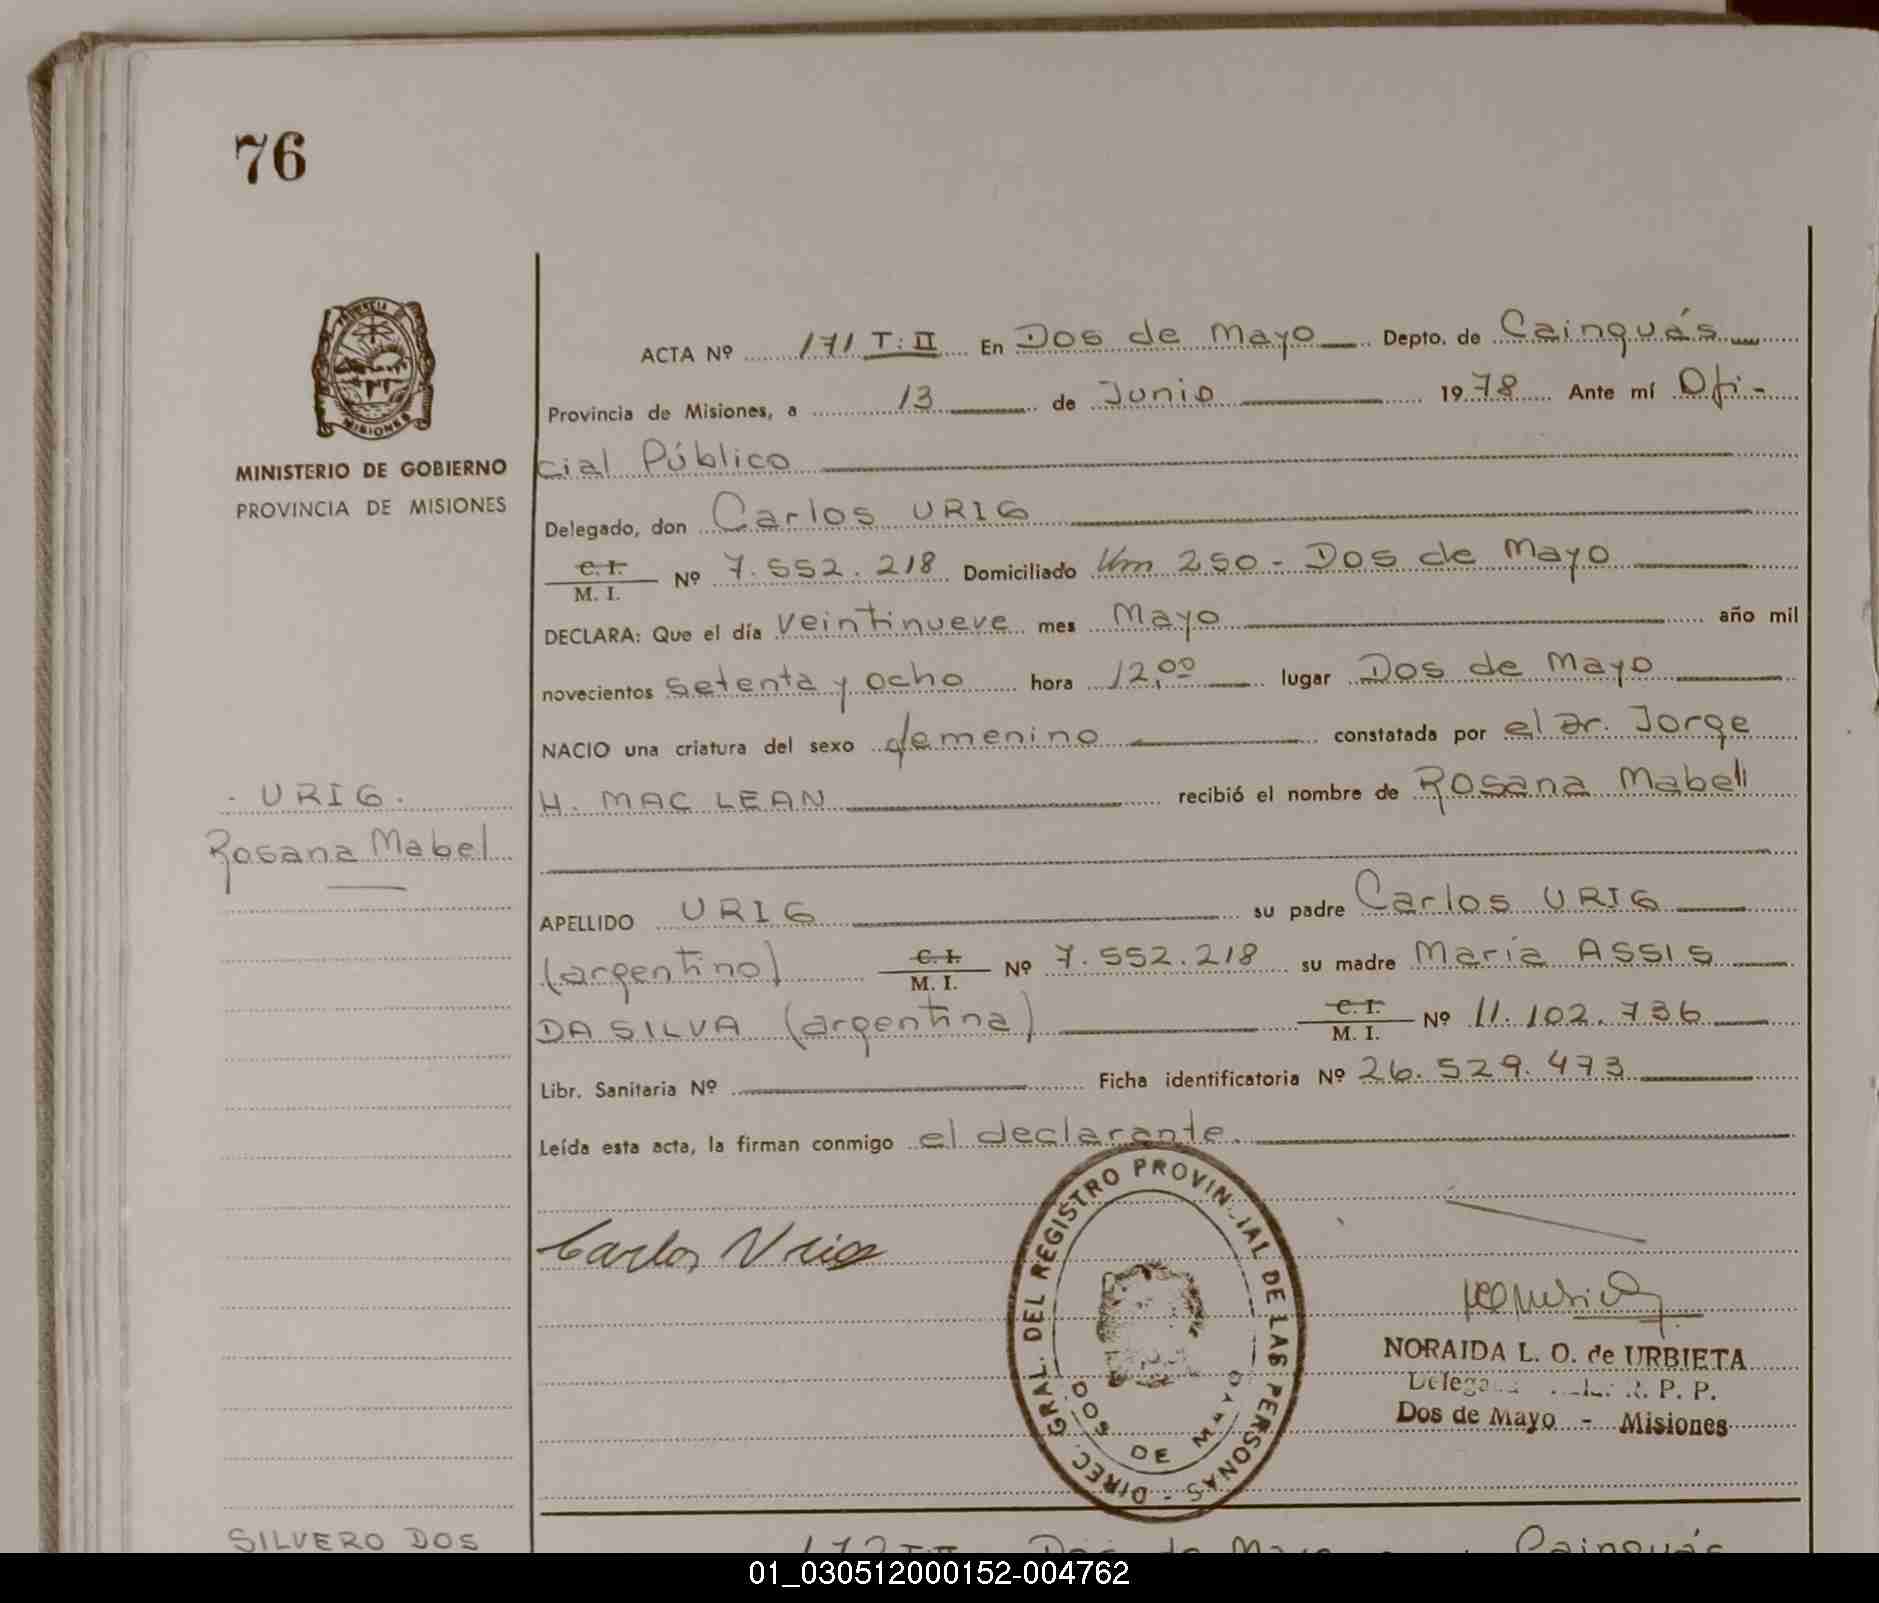 76
PROVINCIA DE
MISIONES
MINISTERIO DE GOBIERNO
PROVINCIA DE MISIONES
ACTA Nº 171 T: II En Dos de Mayo Depto. de Cainguás
Provincia de Misiones, a 13 de Junio 1978 Ante mí Ofi-
cial Público
Delegado, don Carlos URIG
C. I. M. I. Nº 7.552.218 Domiciliado Km 250 - Dos de Mayo
DECLARA: Que el día veintinueve mes Mayo año mil
novecientos setenta y ocho hora 12,00 lugar Dos de Mayo
NACIO una criatura del sexo femenino constatada por el Dr. Jorge
H. MAC LEAN recibió el nombre de Rosana Mabel
- URIG.
Rosana Mabel
APELLIDO URIG su padre Carlos URIG
(argentino) C. I. M. I. Nº 7.552.218 su madre María ASSIS
DA SILVA (argentina) C. I. M. I. Nº 11.102.736
Libr. Sanitaria Nº Ficha identificatoria Nº 26.529.473
Leída esta acta, la firman conmigo el declarante.
Carlos Urig
DIREC. GRAL. DEL REGISTRO PROVINCIAL DE LAS PERSONAS -
DOS DE MAYO
NORAIDA L. O. de URBIETA
R. P. P.
Dos de Mayo - Misiones
SILVERO DOS
172 T: II Dos de Mayo Cainguás
01_030512000152-004762